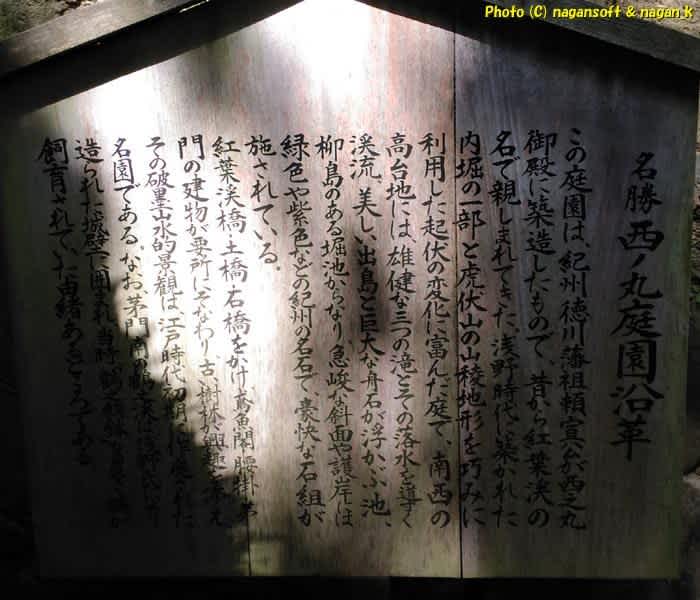 Photo (C) nagansoft & nagan_k
名勝 西ノ丸庭園沿革
この庭園は、紀州徳川藩祖頼宣公が西之丸
御殿に築造したもので、昔から紅葉渓の
名で親しまれてきた。浅野時代に築かれた
内堀の一部と虎伏山の山稜地形を巧みに
利用した起伏の変化に富んだ庭で、南西の
高台地には、雄健な三つの滝とその落水を導く
渓流、美しい出島と巨大な舟石が浮かぶ池、
柳島のある堀池からなり、急峻な斜面や護岸には
緑色や紫色などの紀州の名石で、豪快な石組が
施されている。
紅葉渓橋、土橋、石橋をかけ、鳶魚閣、腰掛、茅
門の建物が要所にそなわり、古い樹林が興趣を添え
その破墨山水的景観は、江戸時代初期に作庭された
名園である。なお、茅門南の鶴の渓は浅野時代に
造られた城壁に囲まれ、当時、鶴
飼育されていた由緒あるところである